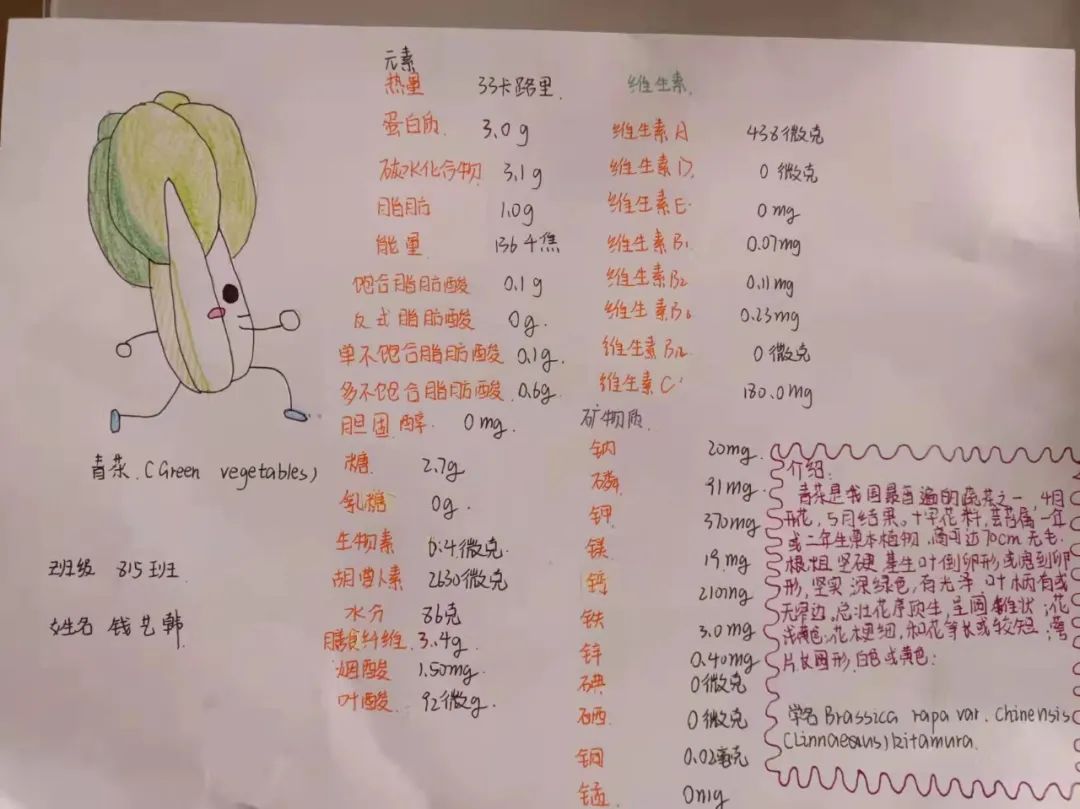 元素
热量 33卡路里.
蛋白质. 3.0g
碳水化合物 3.1g
脂肪 1.0g
能量 136千焦
饱合脂肪酸 0.1g
反式脂肪酸 0g.
单不饱合脂肪酸 0.1g.
多不饱合脂肪酸. 0.6g.
胆固醇. 0mg.
糖. 2.7g
乳糖 0g.
生物素 0.4微克.
胡萝卜素 2630微克
水分 86克
膳食纤维. 3.4g
烟酸 1.50mg.
叶酸. 92微g.
维生素.
维生素A 438微克
维生素D. 0微克
维生素E. 0mg
维生素B1 0.07mg
维生素B2 0.11mg
维生素B6 0.23mg
维生素B12 0微克
维生素C. 180.0mg
矿物质.
钠 20mg.
磷 91mg
钾 370mg
镁 19.mg
钙 210mg
铁 3.0mg
锌 0.40mg
碘 0微克
硒 0微克
铜 0.02毫克
锰 0mg
青菜.(Green vegetables)
班级 815班
姓名 钱艺韩
介绍:
青菜是我国最普遍的蔬菜之一,4月
开花,5月结果。十字花科,芸苔属一年
或二年生草本植物.高可达70cm无毛.
根粗坚硬基生叶倒卵形或宽到卵
形,坚实深绿色,有光泽叶柄有或
无窄边,总状花序顶生,呈圆锥状;花
浅黄色;花梗细,和花等长或较短;萼
片长圆形,白色或黄色;
学名Brassica rapa var. Chinensis
(Linnaesus)kitamura.